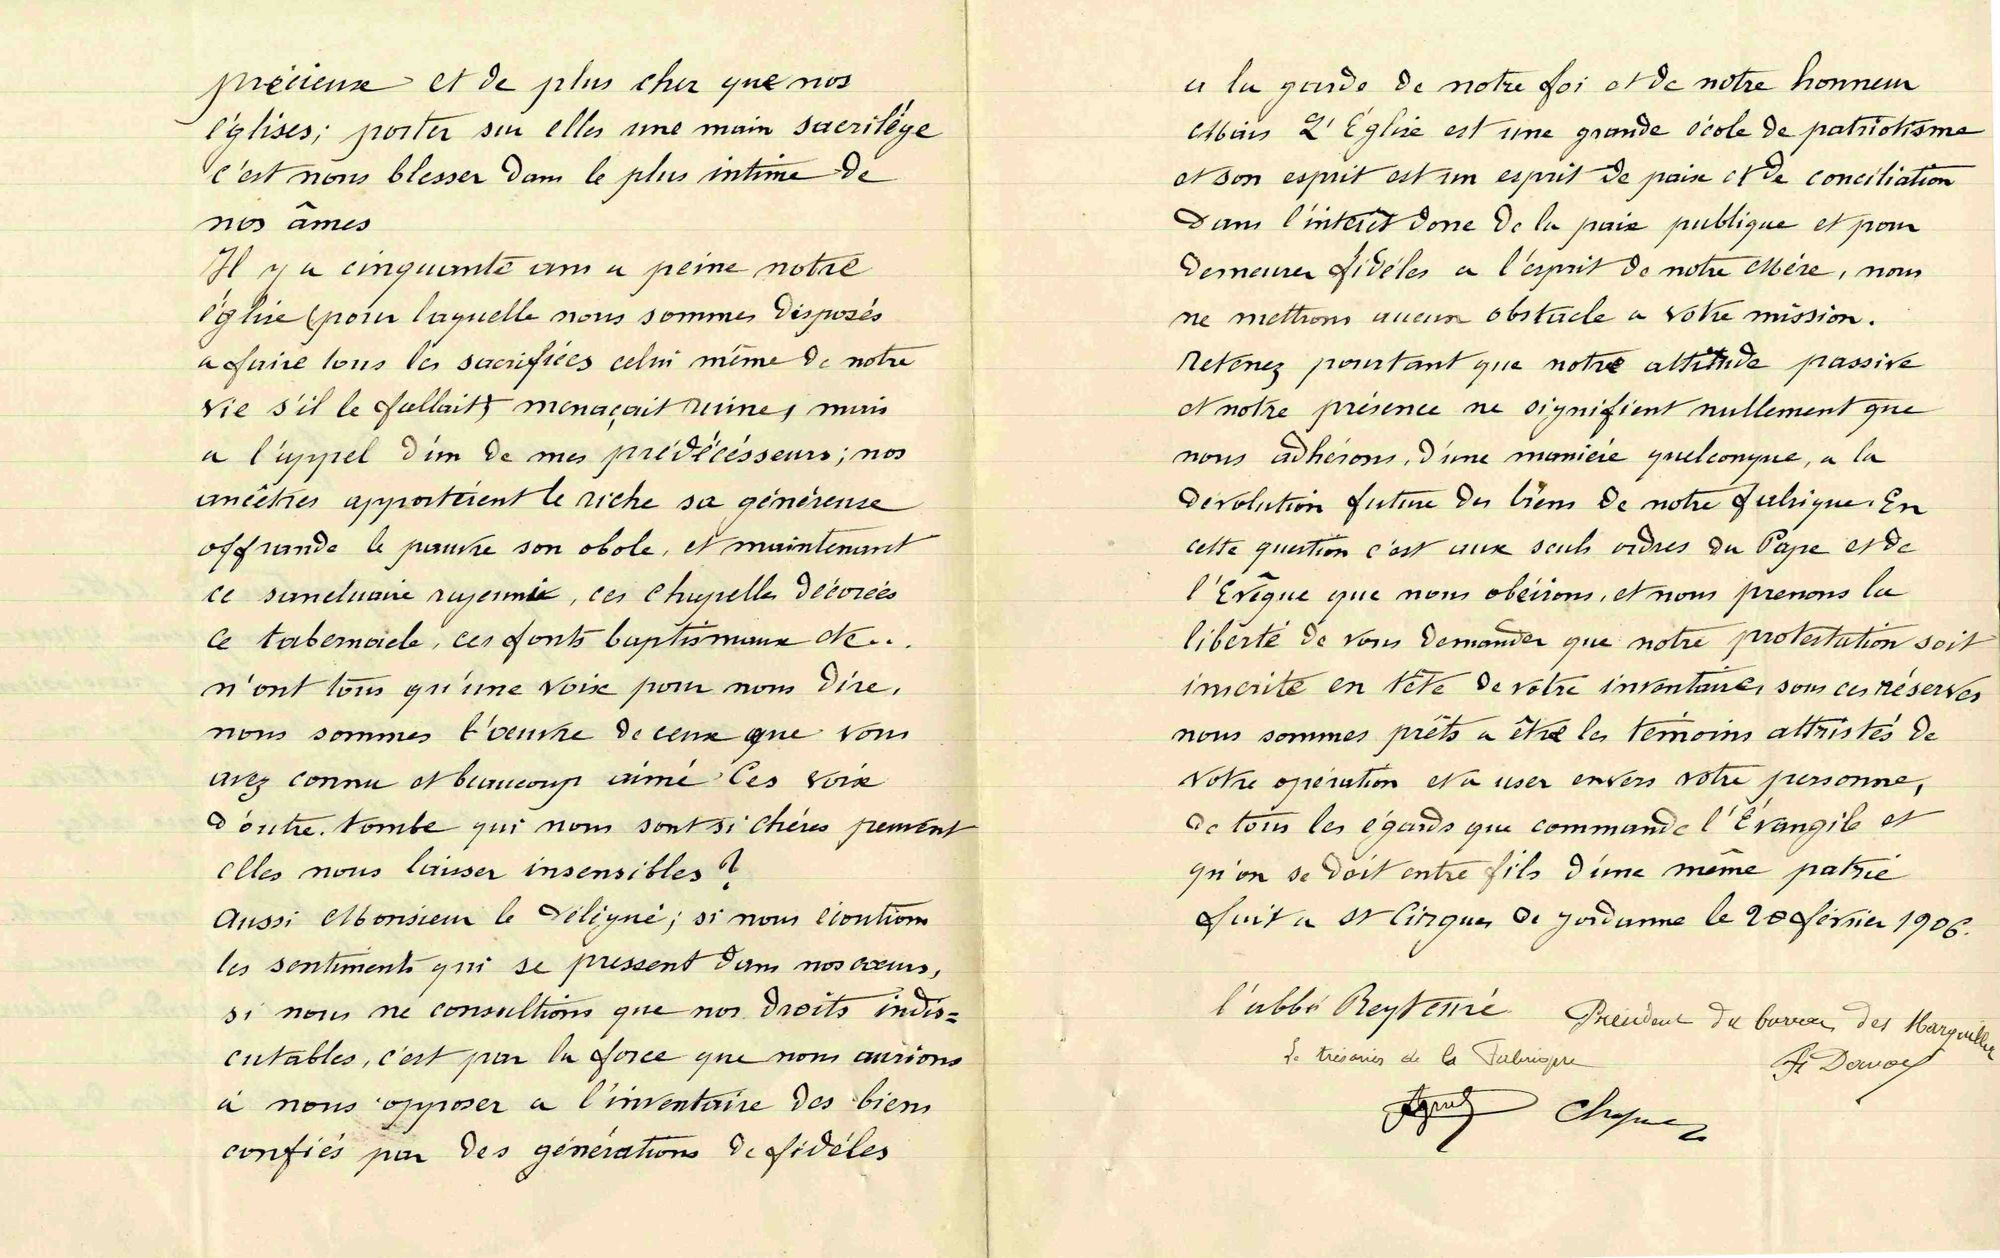 précieux et de plus cher que nos
églises; porter sur elles une main sacrilège
c'est nous blesser dans le plus intime de
nos âmes
Il y a cinquante ans a peine notre
église (pour laquelle nous sommes disposés
a faire tous les sacrifices celui même de notre
vie s'il le fallait) menaçait ruine, mais
a l'appel d'un de mes prédécésseurs; nos
ancêtres apportèrent le riche sa généreuse
offrande le pauvre son obole, et maintenant
ce sanctuaire rajeunie, ces chapelles décorées
ce tabernacle, ces fonts baptismaux etc..
n'ont tous qu'une voix pour nous dire,
nous sommes l'œuvre de ceux que vous
avez connu et beaucoup aimé Ces voix
d'outre-tombe qui nous sont si chéres peuvent
elles nous laisser insensibles?
Aussi Monsieur le Délégué; si nous écoutions
les sentiments qui se pressent dans nos cœurs,
si nous ne consultions que nos droits indis=
cutables, c'est par la force que nous aurions
à nous opposer a l'inventaire des biens
confiés par des générations de fidéles
a la garde de notre foi et de notre honneur
Mais L'Église est une grande école de patriotisme
et son esprit est un esprit de paix et de conciliation
Dans l'intérêt donc de la paix publique et pour
demeurer fidéles a l'esprit de notre Mére, nous
ne mettrons aucun obstacle a votre mission.
Retenez pourtant que notre attitude passive
et notre présence ne signifient nullement que
nous adhérons, d'une maniére quelconque, a la
dévolution future des biens de notre fabrique. En
cette question c'est aux seuls ordres du Pape et de
l'Evêque que nous obéirons, et nous prenons la
liberté de vous demander que notre protestation soit
inscrite en tête de votre inventaire, sous ces réserves
nous sommes prêts a être les témoins attristés de
votre opération et a user envers votre personne,
de tous les égards que commande l'Évangile et
qu'on se doit entre fils d'une même patrie
fait a St Cirgues de Jordanne le 20 février 1906.
l'abbé Reyt
Président du bureau des Marguilliers
Le trésorier de la Fabrique